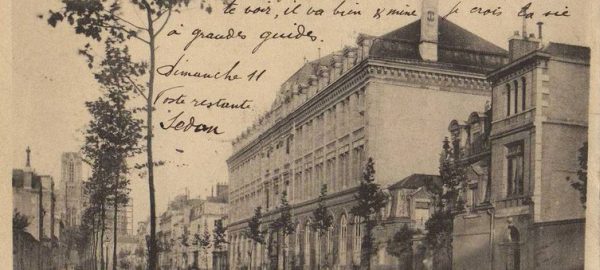 te voir, il va bien & mine je crois la vie
à grandes guides.
Dimanche 11
Poste restante
Sedan